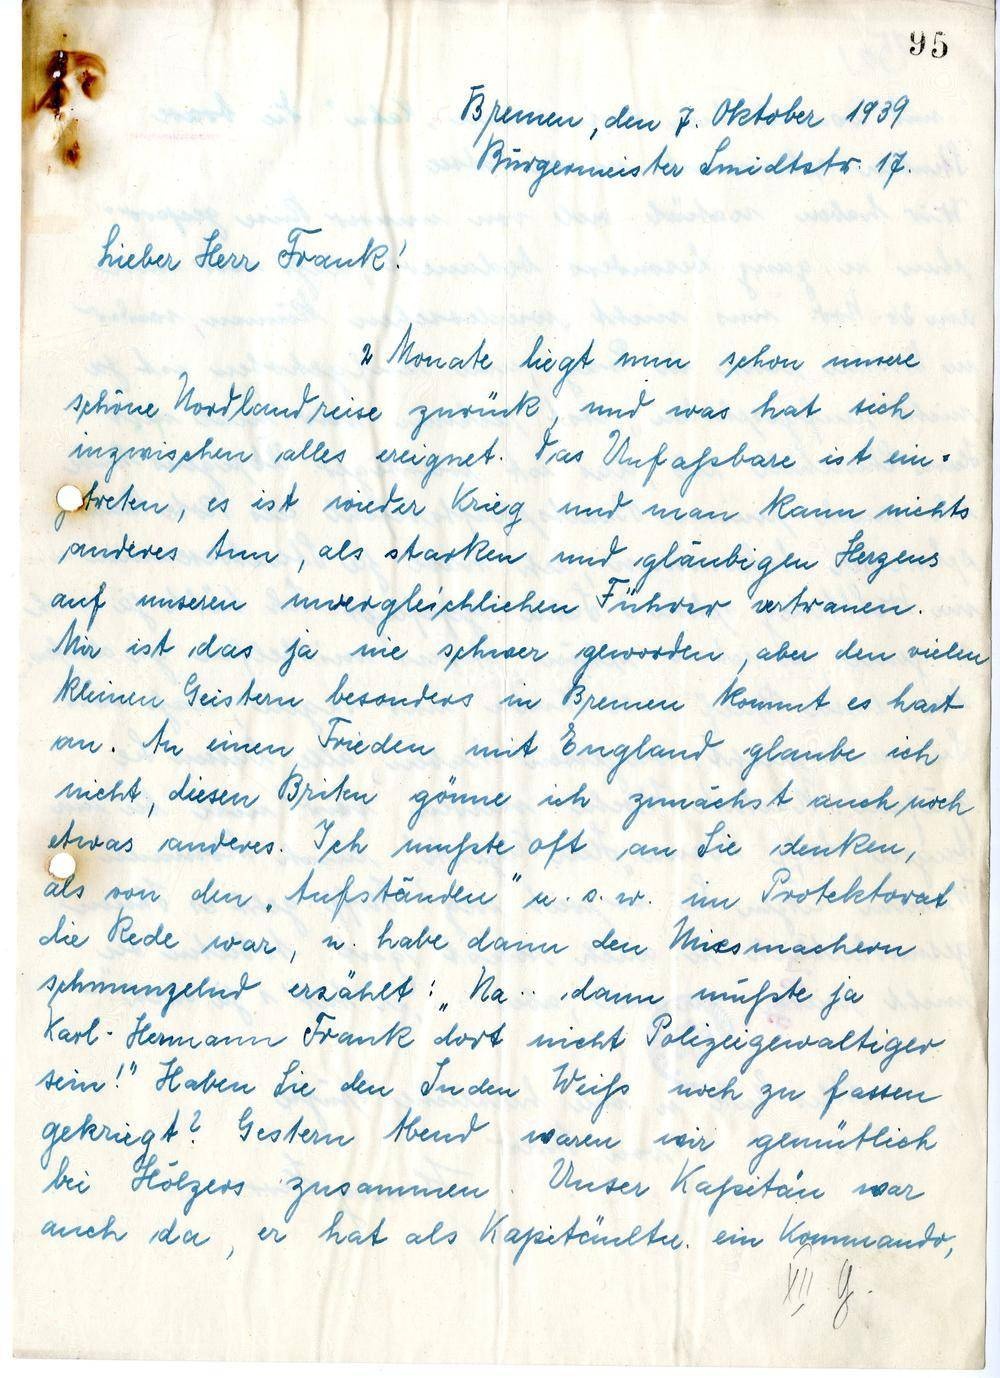 95
Bremen, den 7. Oktober 1939
Bürgermeister Smidtstr. 17.
Lieber Herr Frank!
2 Monate liegt nun schon unsere
schöne Nordlandreise zurück, und was hat sich
inzwischen alles ereignet. Das Unfaßbare ist ein-
getreten, es ist wieder Krieg und man kann nichts
anderes tun, als starken und gläubigen Herzens
auf unseren unvergleichlichen Führer vertrauen.
Mir ist das ja nie schwer geworden, aber den vielen
kleinen Geistern besonders in Bremen kommt es hart
an. An einen Frieden mit England glaube ich
nicht, diesen Briten gönne ich zunächst auch noch
etwas anderes. Ich mußte oft an Sie denken,
als von den „Aufständen" u. s. w. im Protektorat
die Rede war, u. habe dann den Miesmachern
schmunzelnd erzählt: „Na .. dann müßte ja
Karl-Hermann Frank dort nicht Polizeigewaltiger
sein!" Haben Sie den Juden Weiß noch zu fassen
gekriegt? Gestern Abend waren wir gemütlich
bei Hölzers zusammen. Unser Kapitän war
auch da, er hat als Kapitänltn. ein Kommando,
XII g.